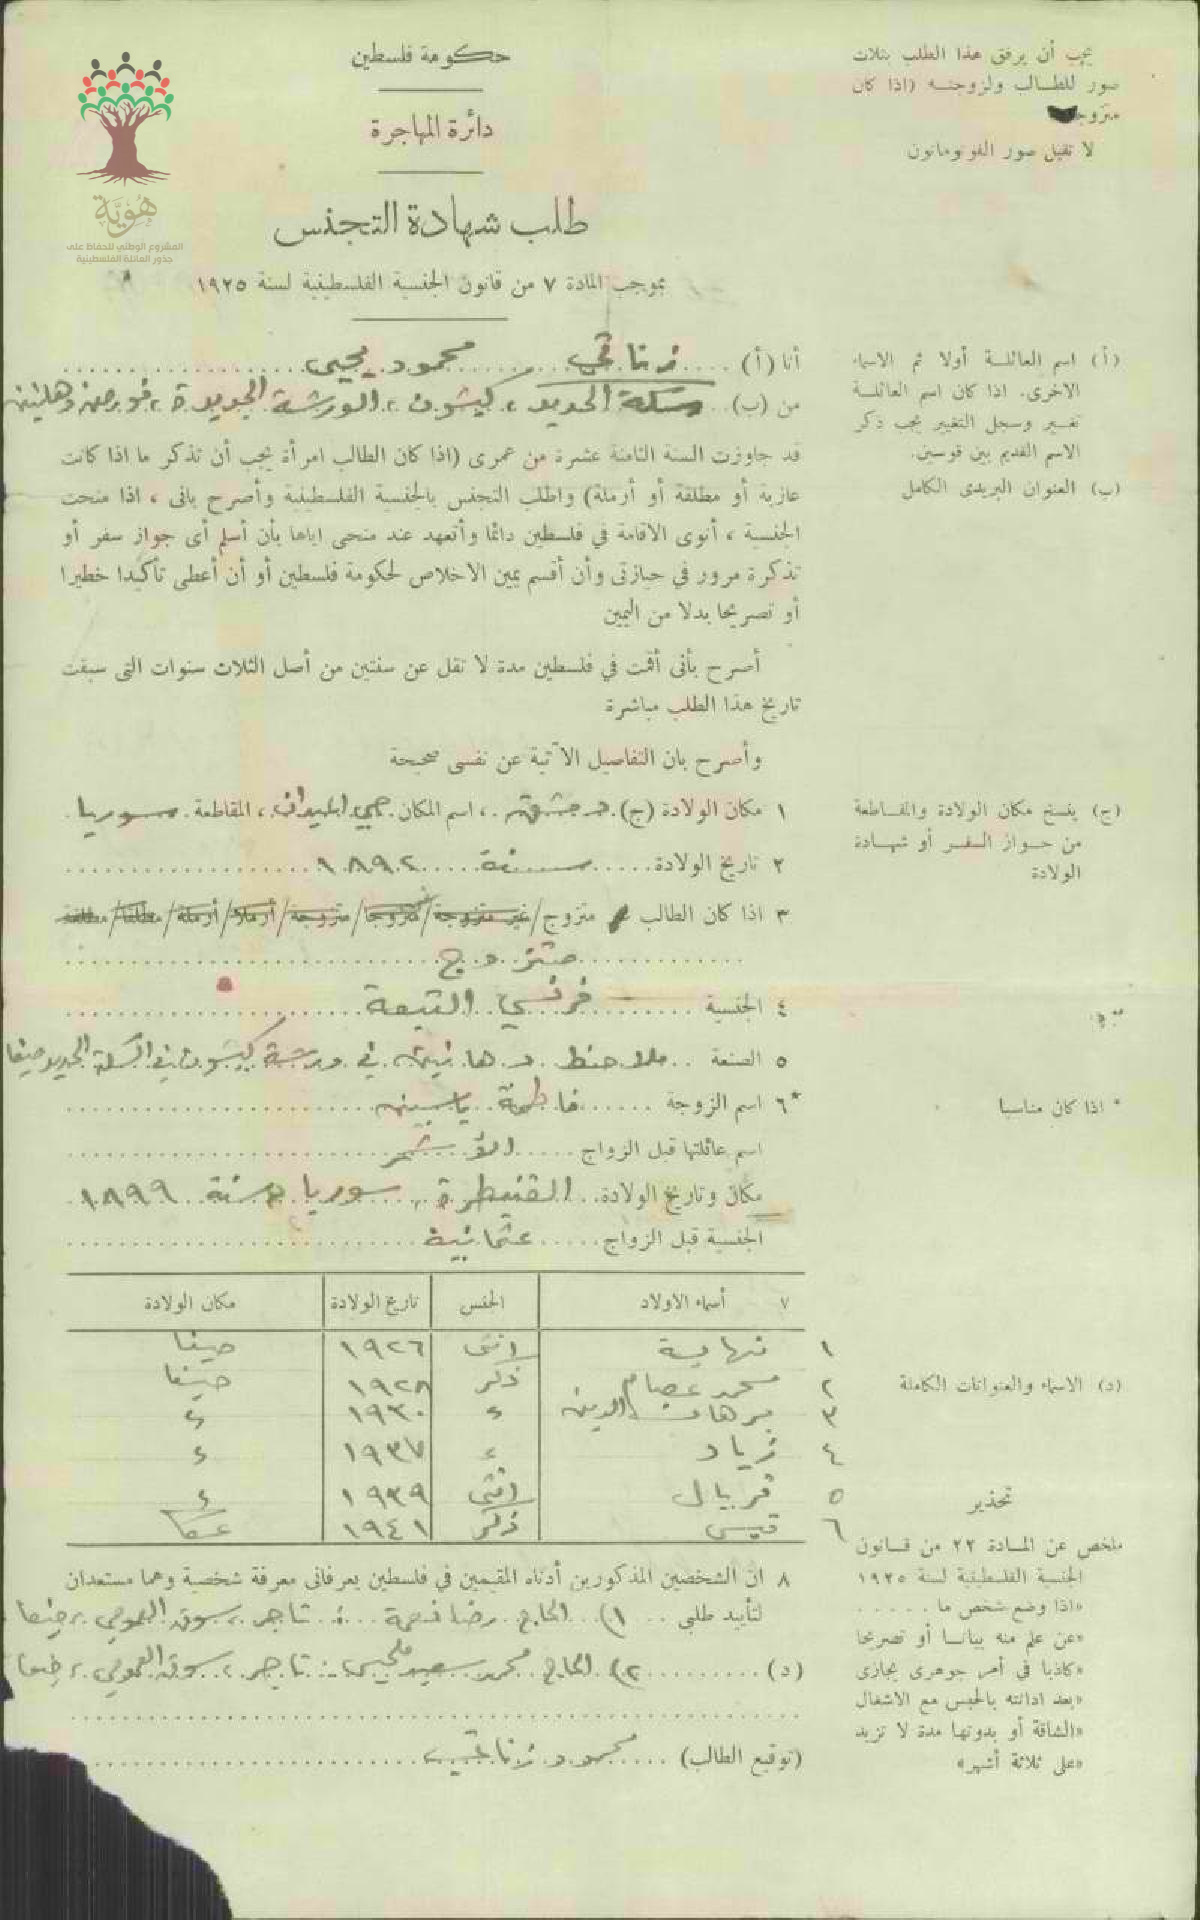 يجب أن يرفق هذا الطلب بثلاث
صور للطالب ولزوجته (اذا كان
متزوجا
لا تقبل صور الفوتوماتون
هُويَّة
المشروع الوطني للحفاظ على
جذور العائلة الفلسطينية
حكومة فلسطين
دائرة المهاجرة
طلب شهادة التجنس
بموجب المادة ٧ من قانون الجنسية الفلسطينية لسنة ١٩٢٥
أنا (أ) زناتي محمود يحيى
من (ب) سكة الحديد، كيشون، الورشة الجديدة، فورمن دهانين
(أ) اسم العائلة أولا ثم الاسماء
الاخرى. اذا كان اسم العائلة
تغير وسجل التغيير يجب ذكر
الاسم القديم بين قوسين.
(ب) العنوان البريدى الكامل
قد جاوزت السنة الثامنة عشرة من عمرى (اذا كان الطالب امرأة يجب أن تذكر ما اذا كانت
عازبة أو مطلقة أو أرملة) واطلب التجنس بالجنسية الفلسطينية وأصرح بانى ، اذا منحت
الجنسية ، أنوى الاقامة في فلسطين دائما وأتعهد عند منحى اياها بأن أسلم أى جواز سفر أو
تذكرة مرور في حيازتى وأن أقسم يمين الاخلاص لحكومة فلسطين أو أن أعطى تأكيدا خطيرا
أو تصريحا بدلا من اليمين
أصرح بأنى أقمت في فلسطين مدة لا تقل عن سنتين من أصل الثلاث سنوات التى سبقت
تاريخ هذا الطلب مباشرة
وأصرح بان التفاصيل الآتية عن نفسى صحيحة
١ مكان الولادة (ج) دمشق ، اسم المكان حي الميدان ، المقاطعة سوريا
(ج) ينسخ مكان الولادة والمقاطعة
من جواز السفر أو شهادة
الولادة
٢ تاريخ الولادة سنة ١٨٩٢
٣ اذا كان الطالب متزوج/غير متزوجة/متزوجا/متزوجة/أرملا/أرملة/مطلقا/مطلقة
متزوج
٤ الجنسية فرنسي التبعة
٥ الصنعة ملاحظ دهانين في ورشة كيشون في السكة الحديد حيفا
٦* اسم الزوجة فاطمة ياسين
* اذا كان مناسبا
اسم عائلتها قبل الزواج الأشمر
مكان وتاريخ الولادة القنيطرة ، سوريا سنة ١٨٩٩
الجنسية قبل الزواج عثمانية
٧ أسماء الاولاد الجنس تاريخ الولادة مكان الولادة
١ نهاية انثى ١٩٢٦ حيفا
٢ محمد عصام ذكر ١٩٢٨ حيفا
٣ برهان الدين ء ١٩٣٠ ء
٤ زياد ء ١٩٣٧ ء
٥ فريال انثى ١٩٣٩ ء
٦ قيس ذكر ١٩٤١ عكا
(د) الاسماء والعنوانات الكاملة
٨ ان الشخصين المذكورين أدناه المقيمين في فلسطين يعرفانى معرفة شخصية وهما مستعدان
لتأييد طلبى ١) الحاج رضا : تاجر ، سوق العمومي ، حيفا
(د) ٢) الحاج محمد سعيد : تاجر ، سوق العمومي ، حيفا
(توقيع الطالب) محمود زناتي
تحذير
ملخص عن المادة ٢٢ من قانون
الجنسية الفلسطينية لسنة ١٩٢٥
«اذا وضع شخص ما . . . . .
«عن علم منه بيانا أو تصريحا
«كاذبا في أمر جوهرى يجازى
«بعد ادانته بالحبس مع الاشغال
«الشاقة أو بدونها مدة لا تزيد
«على ثلاثة أشهر»